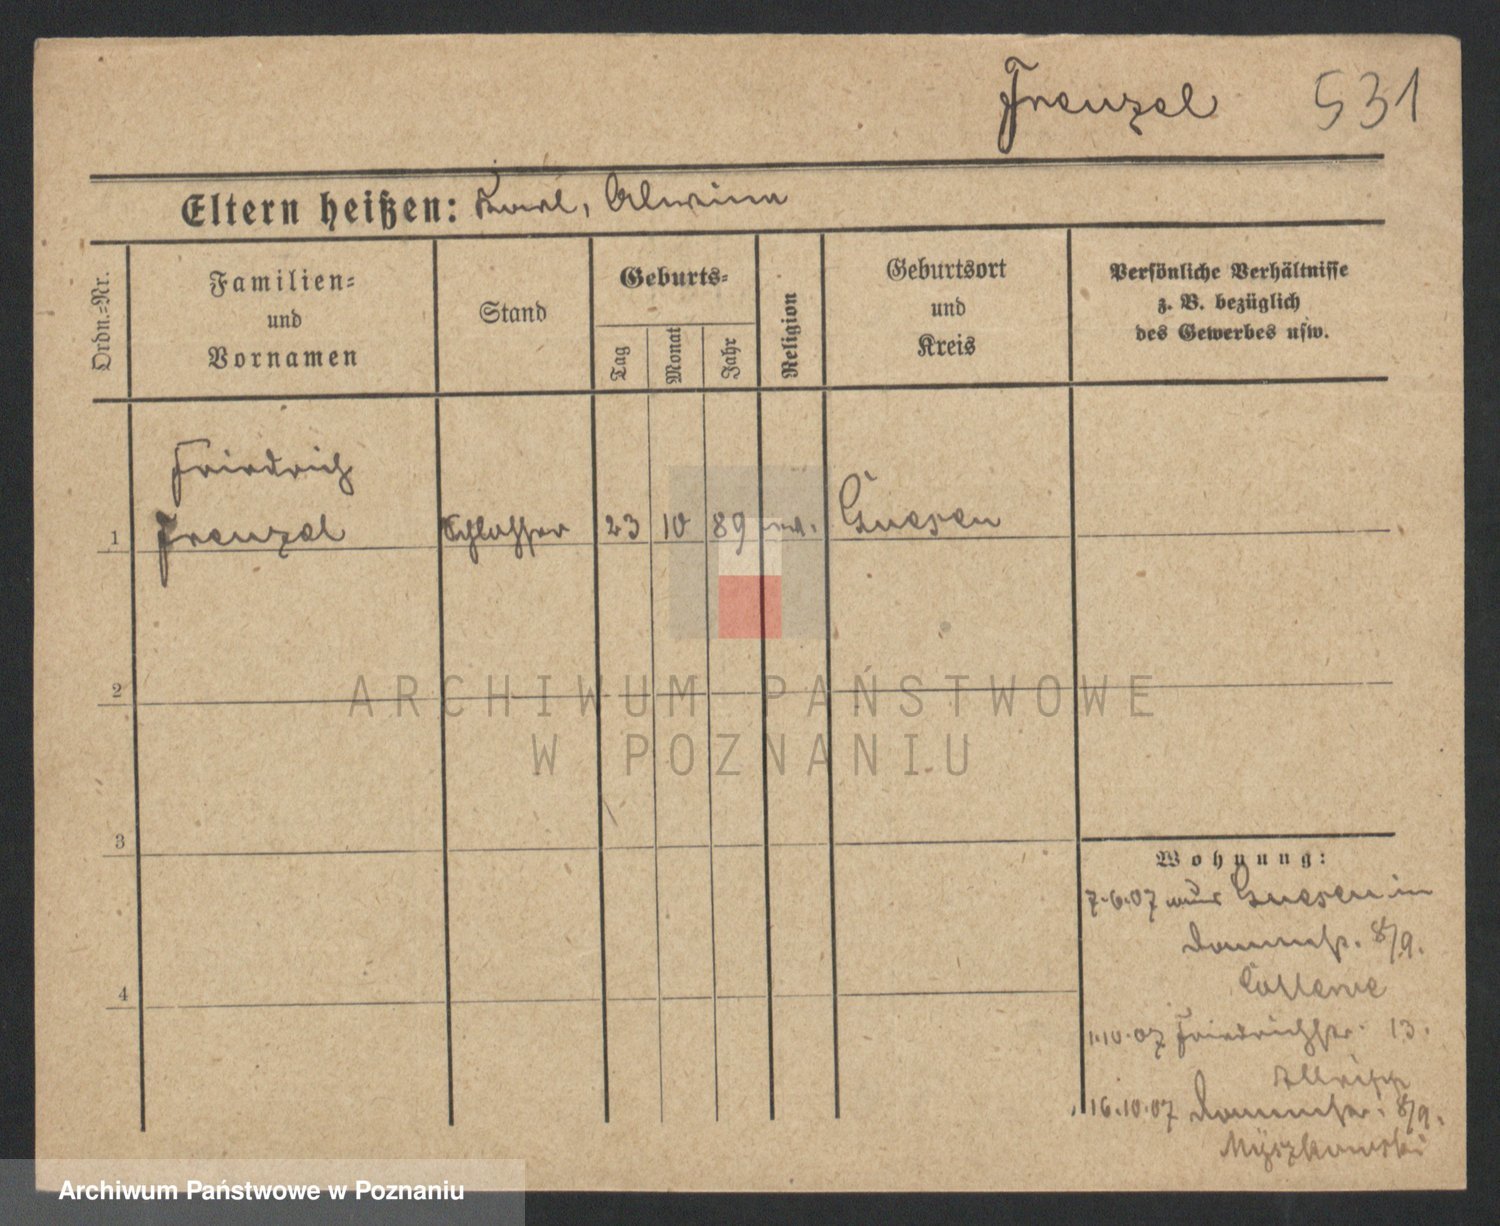 Frenzel 531
Eltern heißen: Karl, Alwina
Ordn.=Nr.
Familien=
und
Vornamen
Stand
Geburts=
Tag
Monat
Jahr
Religion
Geburtsort
und
Kreis
Persönliche Verhältnisse
z. B. bezüglich
des Gewerbes usw.
Friedrich
1 Frenzel Schlosser 23 10 89 ev. Gnesen
2
ARCHIWUM PAŃSTWOWE
W POZNANIU
3
Wohnung:
7.6.07 aus Gnesen in
8/9.
4
1.10.07 Friedrichstr. 13.
16.10.07 8/9.
Myszkowski
Archiwum Państwowe w Poznaniu